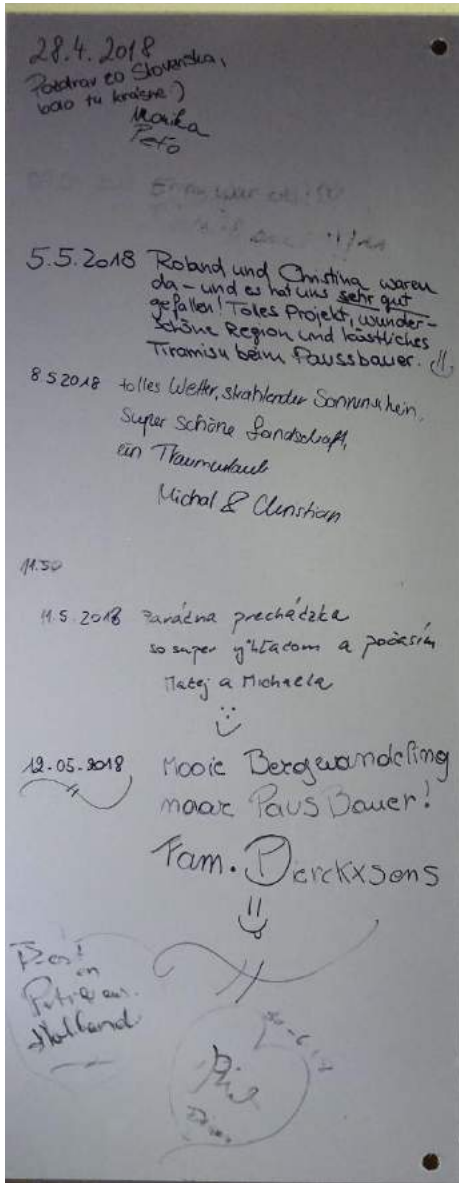 28.4.2018
Pozdrav zo Slovenska,
bolo tu krásne :)
Monika
Peťo
5.5.2018 Roland und Christina waren
da – und es hat uns sehr gut
gefallen! Toles Projekt, wunder-
schöne Region und köstliches
Tiramisu beim Paussbauer.
8.5.2018 tolles Wetter, strahlender Sonnenschein.
Super schöne Landschaft,
ein Traumurlaub
Michal & Christian
11.50
11.5.2018 Parádna prechádzka
so super výhľadom a počasím
Matej a Michaela
12.05.2018 Mooie Bergwandeling
naar Paus Bauer!
Fam. Dierckxsens
en
Holland